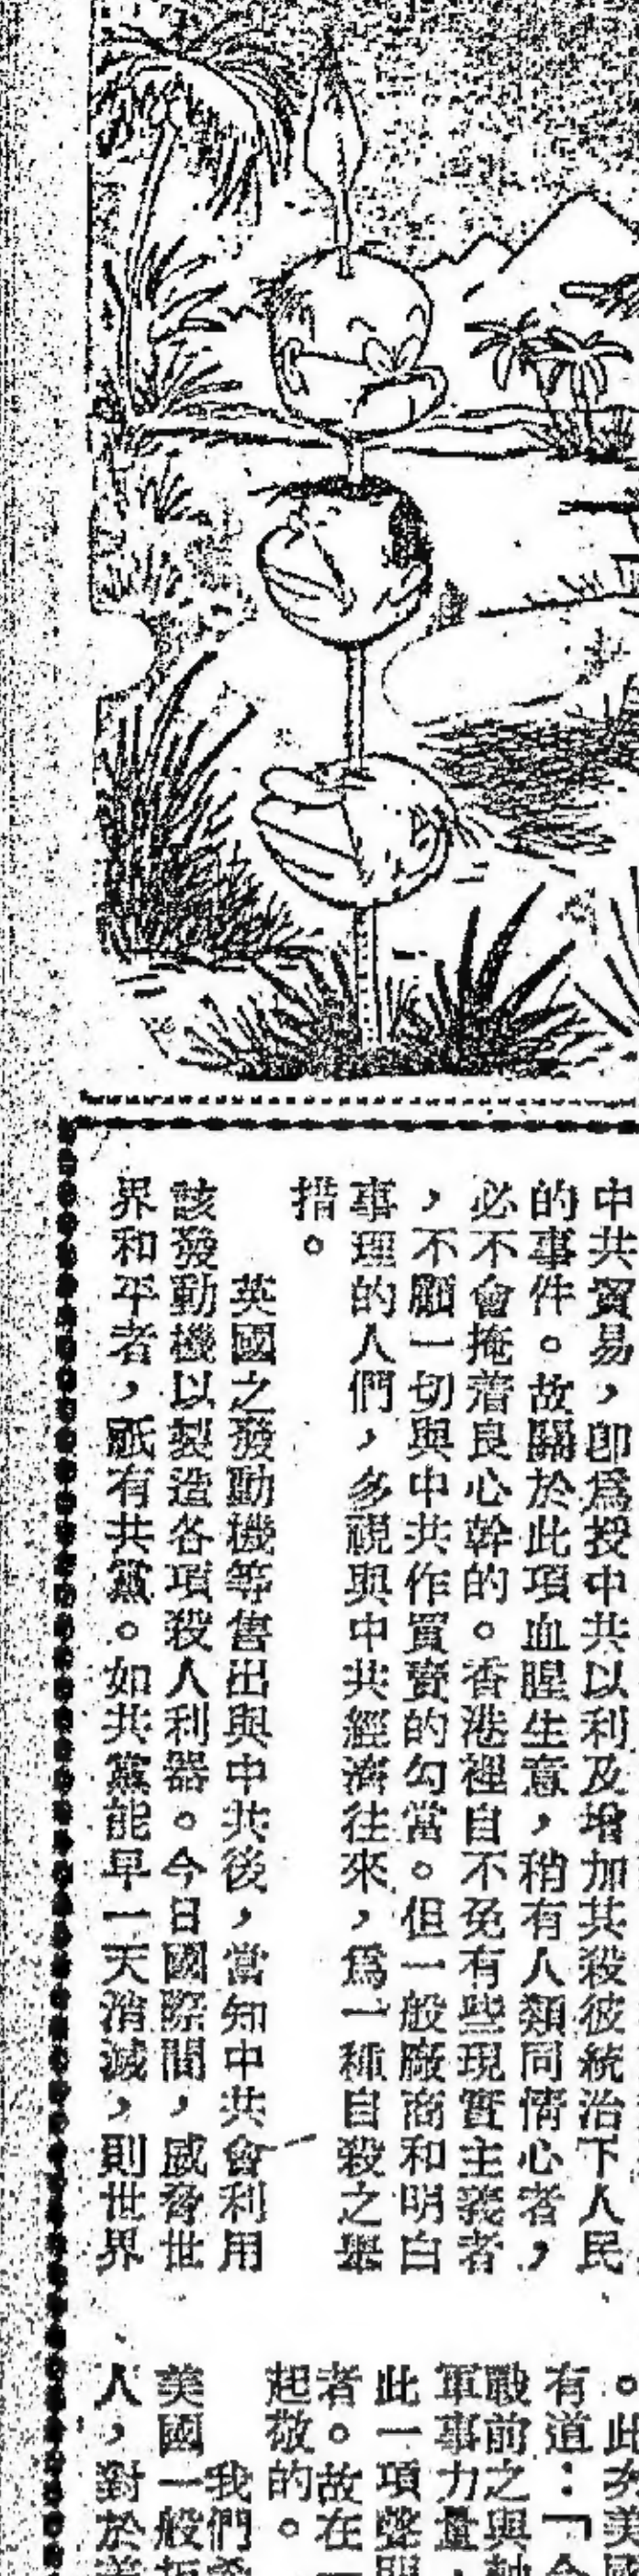 中共貿易，卽爲授中共以利及增加其殺彼統治下人民
的事件。故關於此項血腥生意，稍有人類同情心者，
必不會掩着良心幹的。香港裡自不免有些現實主義者
，不顧一切與中共作買賣的勾當。但一般廠商和明白
事理的人們，多視與中共經濟往來，爲一種自殺之舉
措。
英國之發動機等售出與中共後，當知中共會利用
該發動機以製造各項殺人利器。今日國際間，威脅世
界和平者，祇有共黨。如共黨能早一天消滅，則世界
。此次美國
有道：「今
戰前之與
軍事力量，
此一項聲明
者。故在一
起敬的。
我們
美國一般
人，對於美